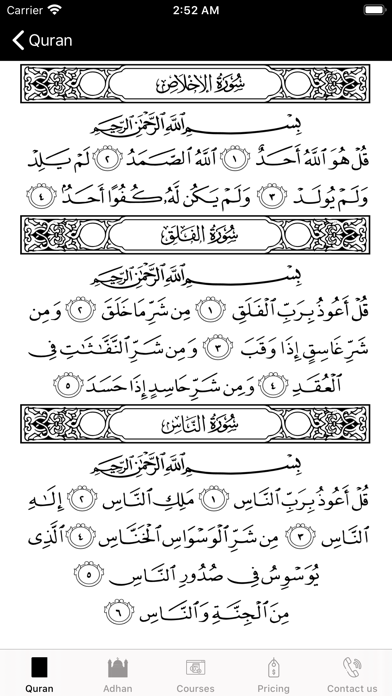 Carrier
2:52 AM
Quran
سُورَةُ الإِخْلَاصِ
بِسْمِ اللَّهِ الرَّحْمَٰنِ الرَّحِيمِ
قُلْ هُوَ اللَّهُ أَحَدٌ ١ اللَّهُ الصَّمَدُ ٢ لَمْ يَلِدْ
وَلَمْ يُولَدْ ٣ وَلَمْ يَكُن لَّهُ كُفُوًا أَحَدٌ ٤
سُورَةُ الفَلَقِ
بِسْمِ اللَّهِ الرَّحْمَٰنِ الرَّحِيمِ
قُلْ أَعُوذُ بِرَبِّ الْفَلَقِ ١ مِن شَرِّ مَا خَلَقَ ٢ وَمِن
شَرِّ غَاسِقٍ إِذَا وَقَبَ ٣ وَمِن شَرِّ النَّفَّاثَاتِ فِي
الْعُقَدِ ٤ وَمِن شَرِّ حَاسِدٍ إِذَا حَسَدَ ٥
سُورَةُ النَّاسِ
بِسْمِ اللَّهِ الرَّحْمَٰنِ الرَّحِيمِ
قُلْ أَعُوذُ بِرَبِّ النَّاسِ ١ مَلِكِ النَّاسِ ٢ إِلَٰهِ
النَّاسِ ٣ مِن شَرِّ الْوَسْوَاسِ الْخَنَّاسِ ٤ الَّذِي
يُوَسْوِسُ فِي صُدُورِ النَّاسِ ٥
مِنَ الْجِنَّةِ وَالنَّاسِ ٦
Quran
Adhan
Courses
Pricing
Contact us